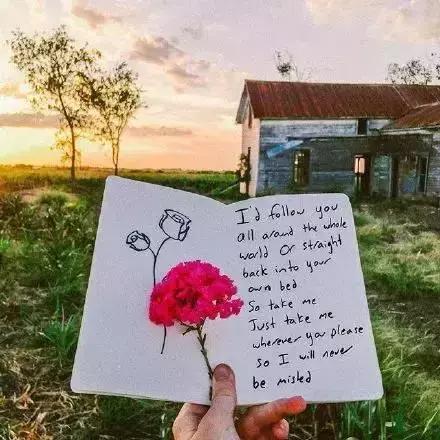 I'd follow you
all around the whole
world Or straight
back into your
own bed
So take me
Just take me
wherever you please
so I will never
be misled